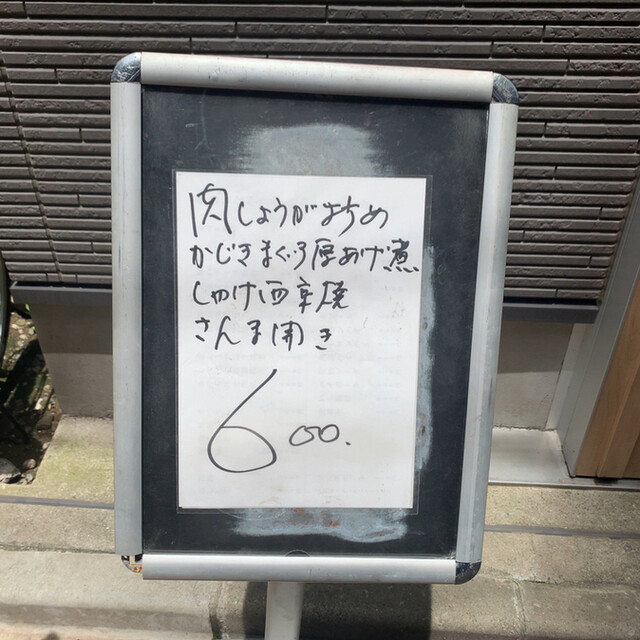 肉しょうが炒め
かじきまぐろ厚あげ煮
しゃけ西京焼
さんま開き
600.